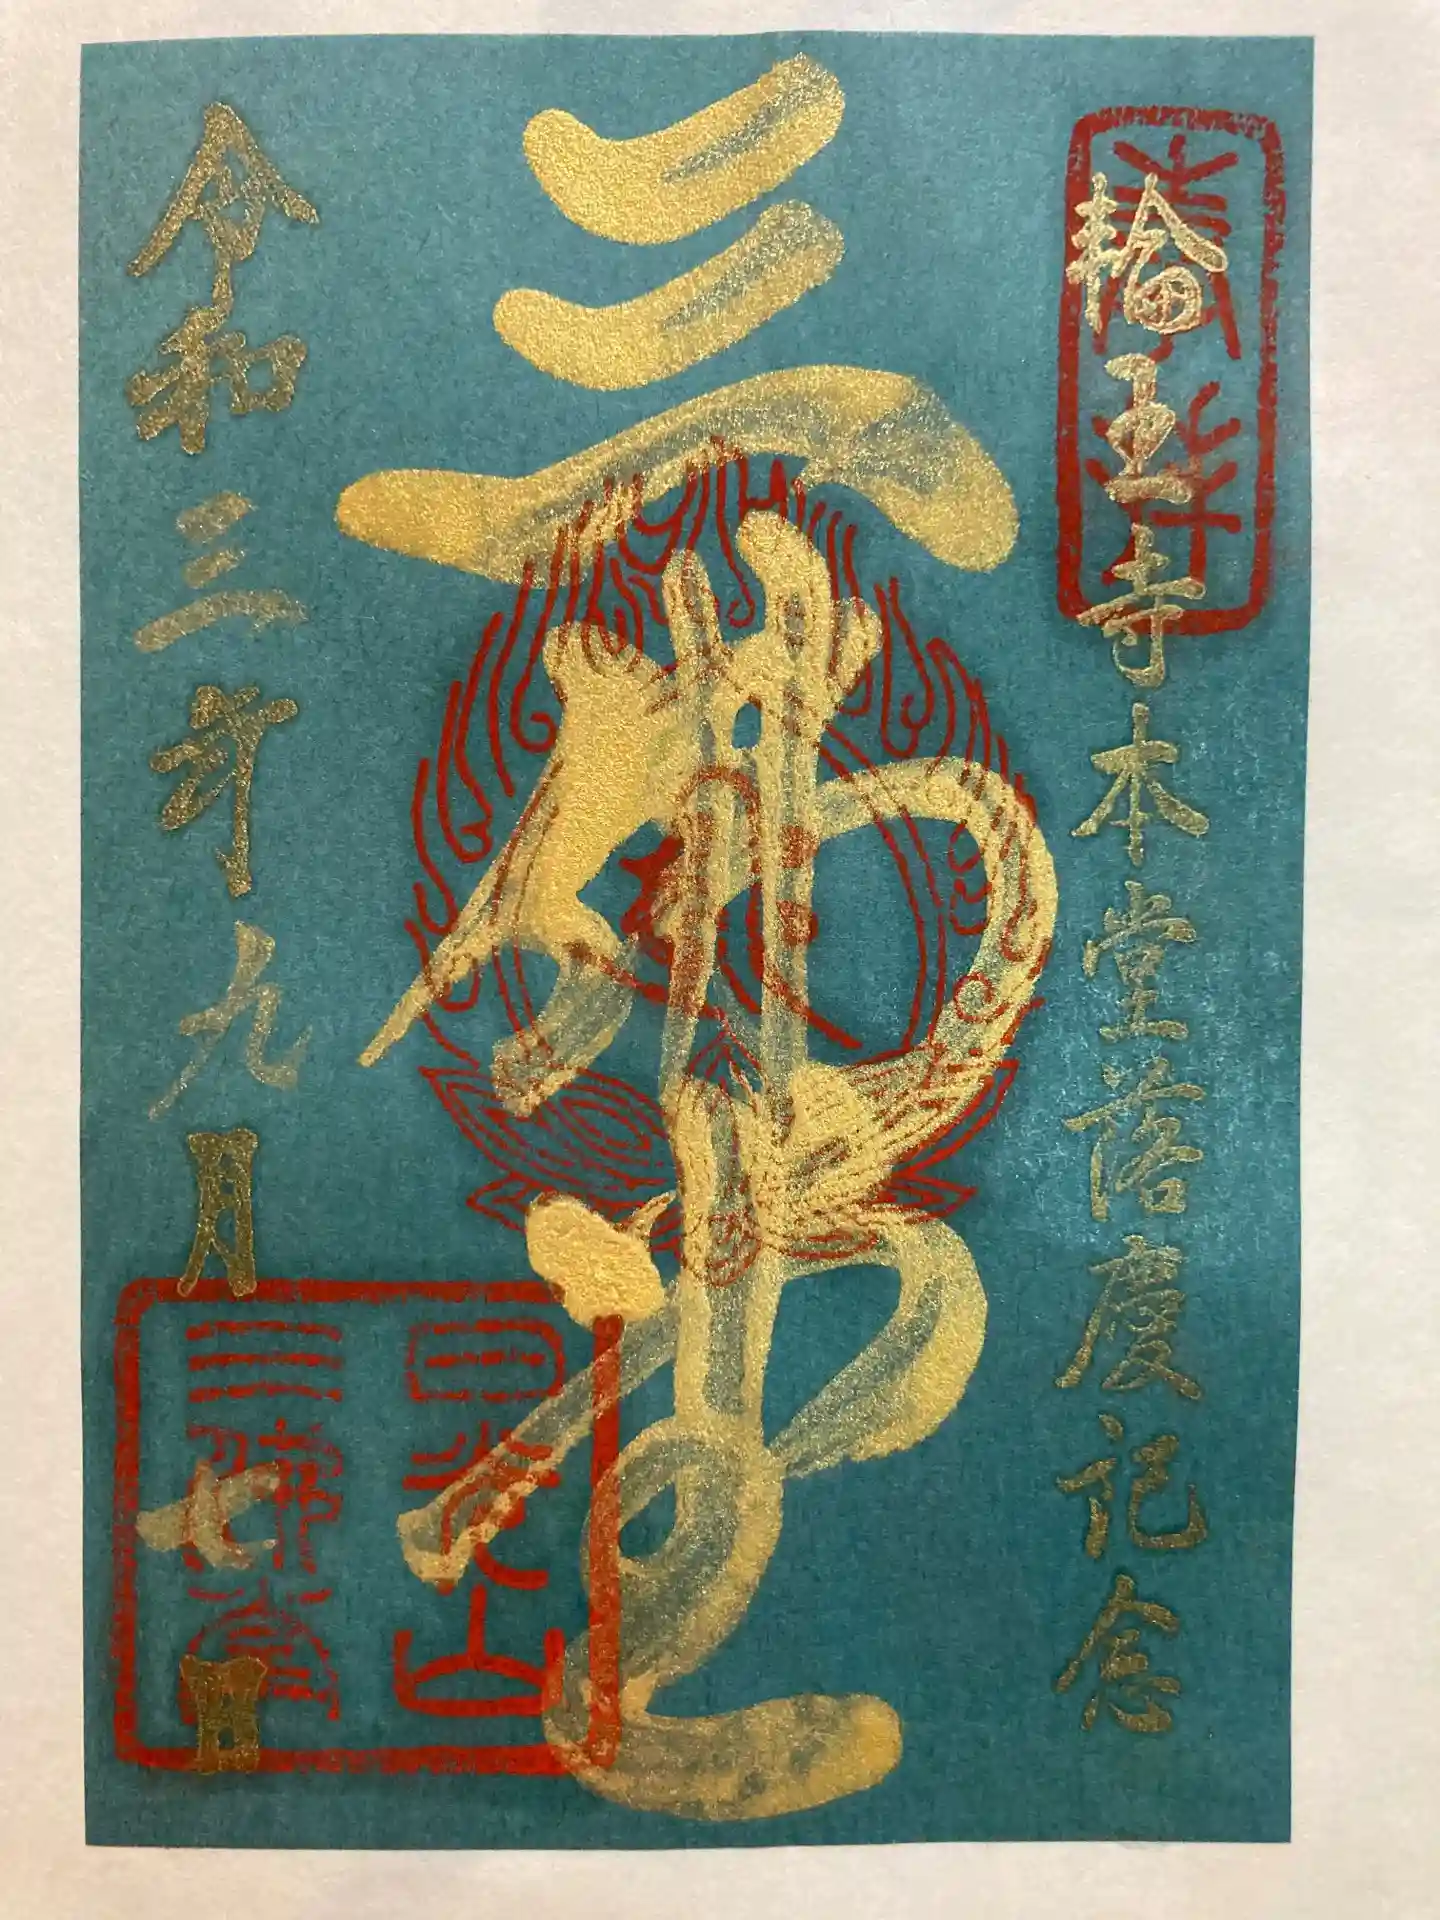 奉拝
輪王寺本堂落慶記念
三佛堂
日光山
三佛堂
令和三年九月七日